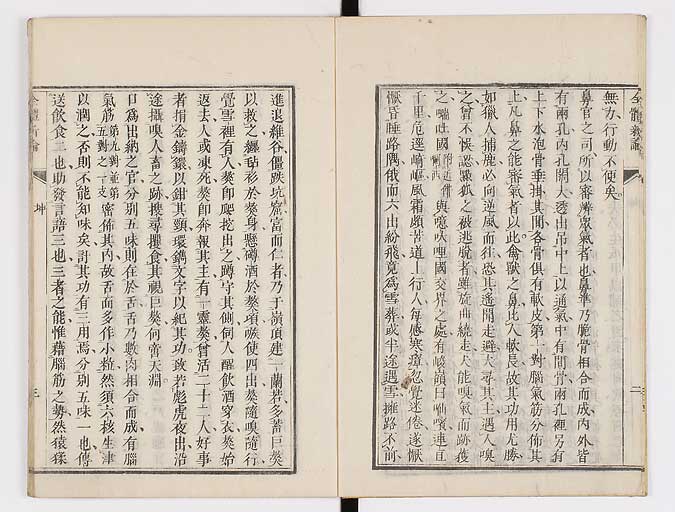 無力行動不使矣
鼻官之司所以審辨衆氣者也鼻準乃脆骨相合而成內外皆
有兩孔內孔闊大透出吊中上以通氣中有間骨兩孔裡另有
上下水泡骨垂掛其間各骨俱有軟皮第一對腦氣筋分佈其
上凡鼻之能審氣者以此禽獸之鼻比人較長故其功用尤勝
如獵人捕鹿必向逆風而往恐其遙聞走避犬尋其主遇人嗅
之曾不悞認獵狐之被逃脫者雖旋曲繞走犬能嗅氣而跡獲
與噫呔哩國交界之處有峻嶺曰
千里危逕崎嶇風霜頗苦道上行人每感寒瘴忽覺迷倦遂憮
憮昏睡路隅俄而六出紛飛竟為雪葬或半途遇雪擁路不前
進退維谷僵跌坑窟富而仁者乃于嶺頂建一蘭若多蓄巨獒
以救之纏毡衫於獒身懸磚酒於獒項嗾使四出獒隨嗅隨行
覺雪裡有人獒卽爬挖出之蹲守其側伺人醒飲酒穿衣獒始
返去人或凍死獒卽奔報其主有一靈獒曾活二十二人好事
者捐金鑄鐶以鉗其頸環鐫文字以紀其功致若彪虎夜出沿
途攝嗅人畜之跡搜尋攫食其視巨獒何啻天淵
口為出納之官分別五味則在於舌舌乃數肉相合而成有腦
氣筋第九對並第五對之一支密佈其內故舌面多作小粒然須六核生津
以潤之否則不能知味矣計其功有三用焉分別五味一也傳
送飲食二也助發言語三也三者之能惟藉腦筋之勢然猿猱
全體新論
坤
二
三